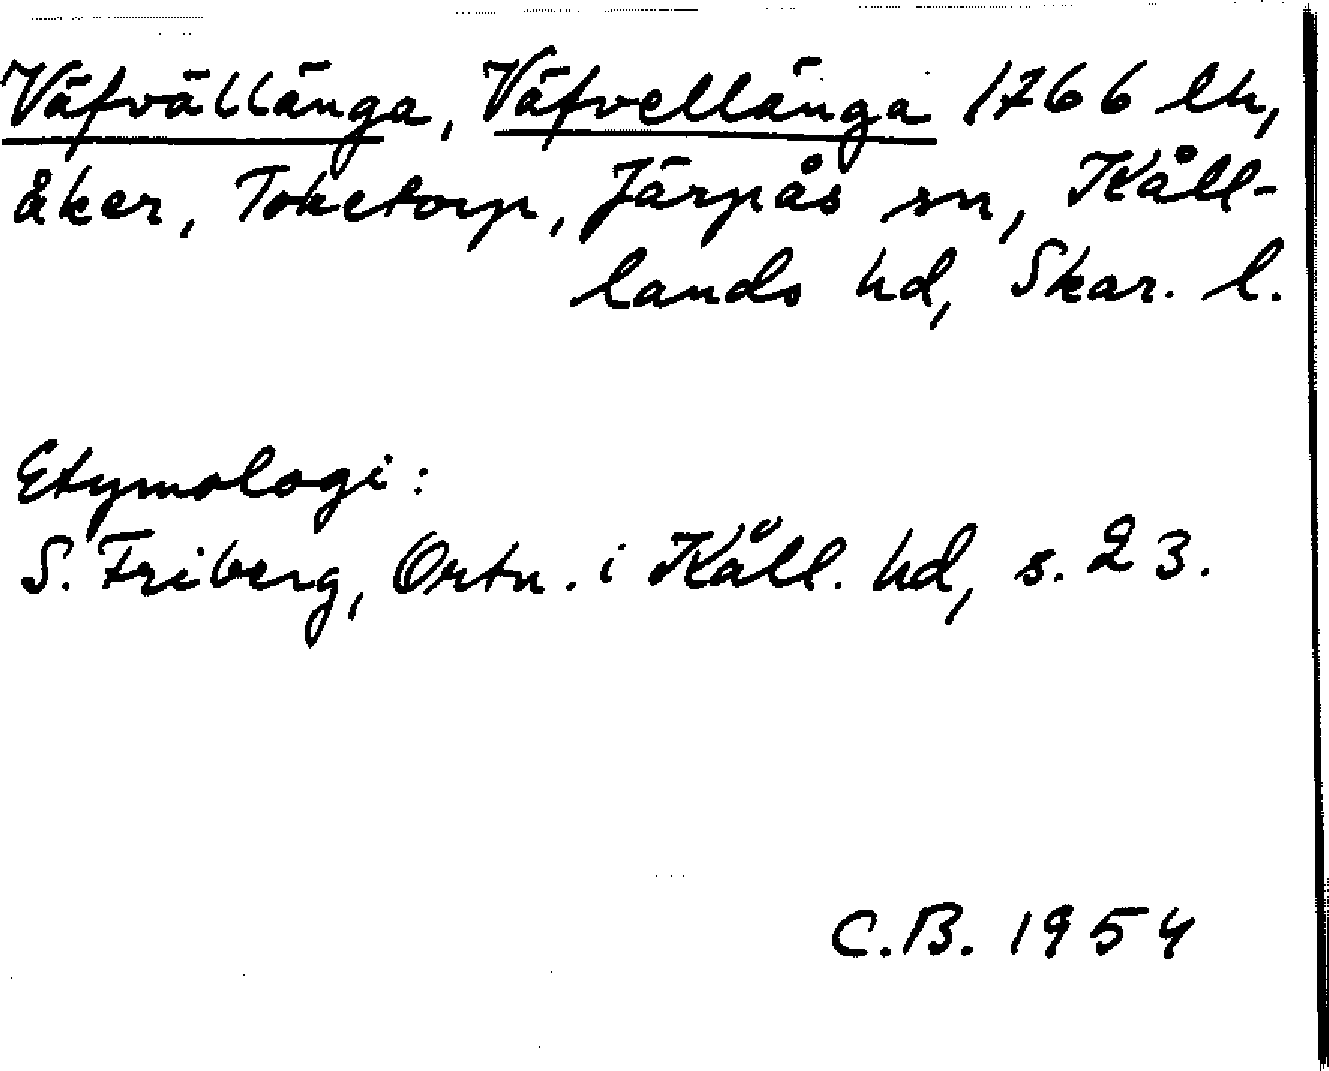 Väfvällänga, Väfvellänga 1766 lh,
åker, Toketorp, Järpås sn, Kåll-
lands hd, Skar. l.
Etymologi:
S. Friberg, Ortn. i Kåll. hd, s. 23.
C.B. 1954